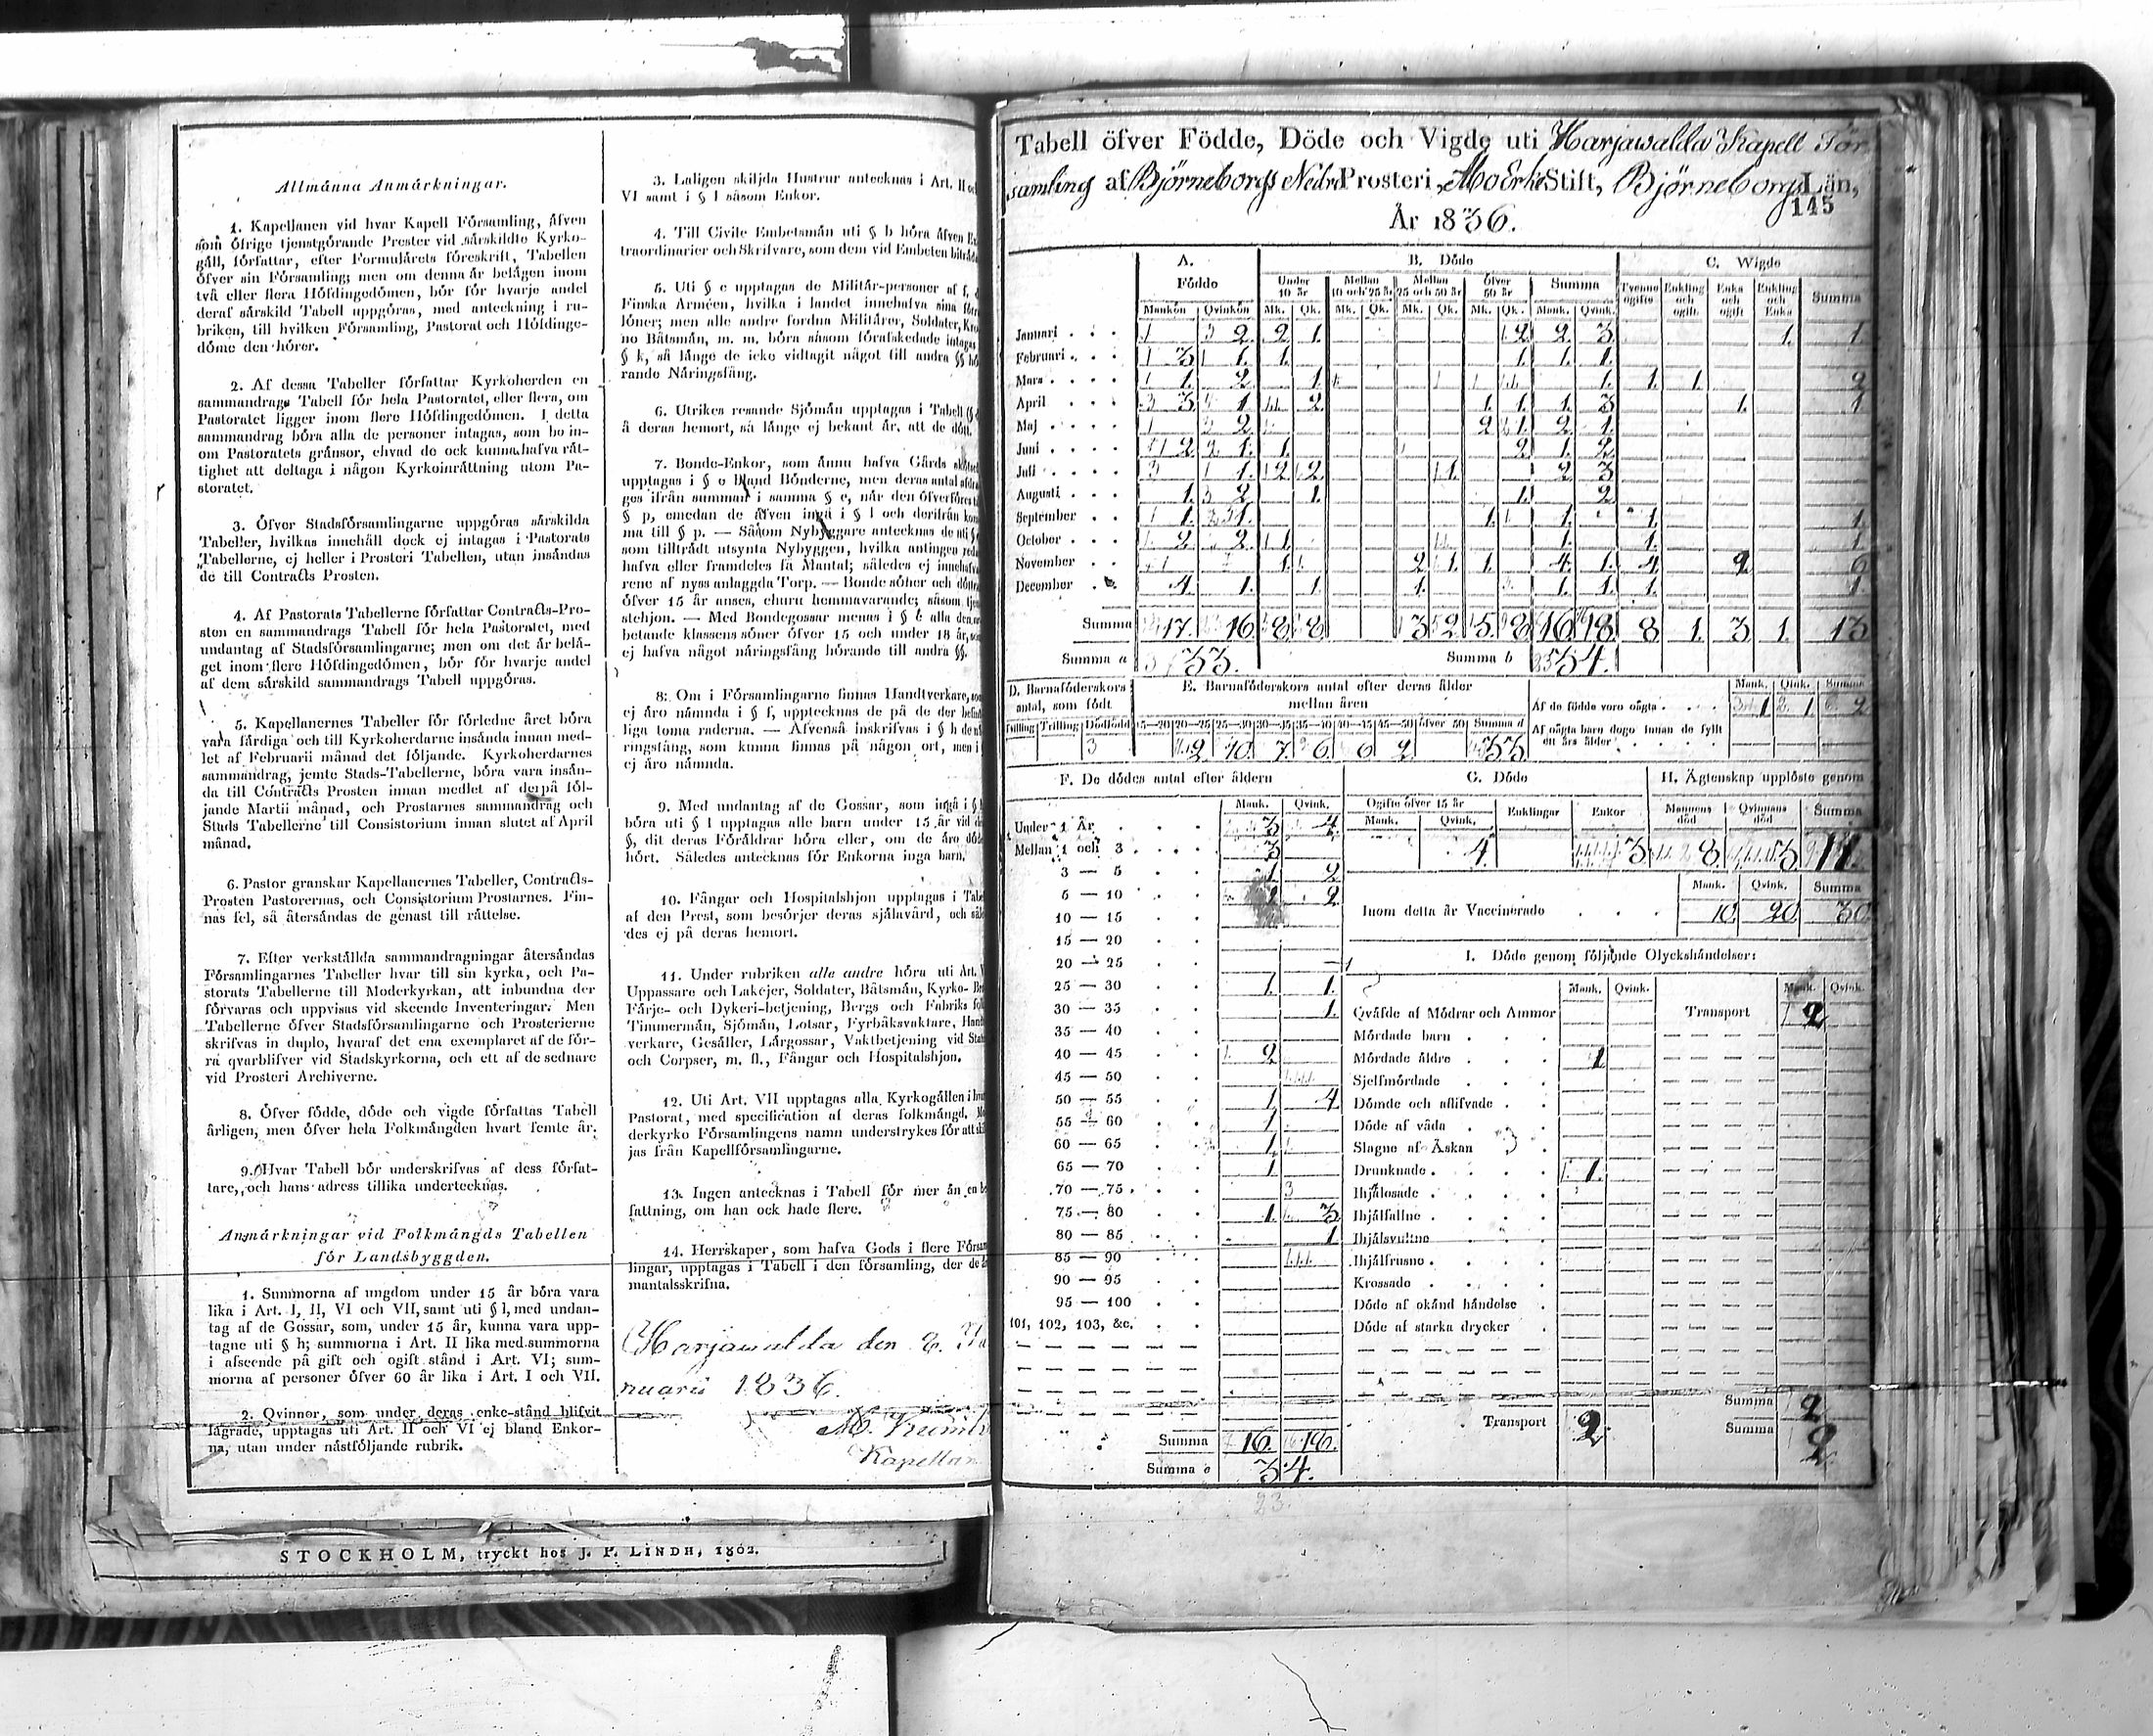 Allmänna Anmärkningar.
1. Kapellanen vid hvar Kapell Församling, äfven
som öfrige tjenstgörande Prester vid särskildte Kyrko-
gäll, författar, efter Formulärets föreskrift, Tabellen
öfver sin Församling; men om denna är belägen inom
två eller flera Höfdingedömen, bör för hvarje andel
deraf särskild Tabell uppgöras, med anteckning i ru-
briken, till hvilken Församling, Pastorat och Höfdinge-
döme den hörer.
2. Af dessa Tabeller författar Kyrkoherden en
sammandrags Tabell för hela Pastoratet, eller flera, om
Pastoratet ligger inom flere Höfdingedömen. I detta
sammandrag böra alla de personer intagas, som bo in-
om Pastoratets gränsor, ehvad de ock kunna hafva rät-
tighet att deltaga i någon Kyrkoinrättning utom Pa-
storatet.
3. Öfver Stadsförsamlingarne uppgöras särskilda
Tabeller, hvilkas innehåll dock ej intagas i Pastorats
Tabellerne, ej heller i Prosteri Tabellen, utan insändas
de till Contracts Prosten.
4. Af Pastorats Tabellerne författar Contracts-Pro-
sten en sammandrags Tabell för hela Pastoratet, med
undantag af Stadsförsamlingarne; men om det är belä-
get inom flere Höfdingedömen, bör för hvarje andel
af dem särskild sammandrags Tabell uppgöras.
5. Kapellanernes Tabeller för förledne året böra
vara färdiga och till Kyrkoherdarne insända innan med-
let af Februarii månad det följande. Kyrkoherdarnes
sammandrag, jemte Stads-Tabellerne, böra vara insän-
da till Contracts Prosten innan medlet af derpå föl-
jande Martii månad, och Prostarnes sammandrag och
Stads Tabellerne till Consistorium innan slutet af April
månad.
6. Pastor granskar Kapellanernes Tabeller, Contracts-
Prosten Pastorernas, och Consistorium Prostarnes. Fin-
nas fel, så återsändas de genast till rättelse.
7. Efter verkställda sammandragningar återsändas
Församlingarnes Tabeller hvar till sin kyrka, och Pa-
storats Tabellerne till Moderkyrkan, att inbundna der
förvaras och uppvisas vid skeende Inventeringar. Men
Tabellerne öfver Stadsförsamlingarne och Prosterierne
skrifvas in duplo, hvaraf det ena exemplaret af de för-
ra qvarblifver vid Stadskyrkorna, och ett af de sednare
vid Prosteri Archiverne.
8. Öfver födde, döde och vigde författas Tabell
årligen, men öfver hela Folkmängden hvart femte år.
9. Hvar Tabell bör underskrifvas af dess förfat-
tare, och hans adress tillika undertecknas.
Anmärkningar vid Folkmängds Tabellen
för Landsbyggden.
1. Summorna af ungdom under 15 år böra vara
lika i Art. I, II, VI och VII, samt uti § l, med undan-
tag af de Gossar, som, under 15 år, kunna vara upp-
tagne uti § h; summorna i Art. II lika med summorna
i afseende på gift och ogift stånd i Art. VI; sum-
morna af personer öfver 60 år lika i Art. I och VII.
2. Qvinnor, som under deras enke-stånd blifvit
lägrade, upptagas uti Art. II och VI ej bland Enkor-
na, utan under nästföljande rubrik.
3. Laligen skiljda Hustrur antecknas i Art. II
VI samt i § l såsom Enkor.
4. Till Civile Embetsmän uti § b höra äfven
traordinarier och Skrifvare, som dem vid Embeten
5. Uti § c upptagas de Militär-personer af
Finska Arméen, hvilka i landet innehafva sina
löner; men alle andre fordna Militärer, Soldater,
no Båtsmän, m. m. böra såsom förafskedade
§ k, så länge de icke vidtagit något till andra §§
rande Näringsfång.
6. Utrikes resande Sjömän upptagas i Tabell
å deras hemort, så länge ej bekant är, att de
7. Bonde-Enkor, som ännu hafva Gårds
upptagas i § e bland Bönderne, men deras antal
ges ifrån summan i samma § e, när den öfverföres
§ p, emedan de äfven ingå i § l och derifrån
ma till § p. — Såsom Nybyggare antecknas de uti §
som tillträdt utsynta Nybyggen, hvilka antingen
hafva eller framdeles få Mantal; således ej
rene af nyss anlaggda Torp. — Bonde söner och
öfver 15 år anses, ehuru hemmavarande; såsom
stehjon. — Med Bondegossar menas i § alla
betande klassens söner öfver 15 och under 18 år,
ej hafva något näringsfång hörande till andra §§.
8. Om i Församlingarne finnas Handtverkare,
ej äro nämnda i § f, upptecknas de på de der
liga toma raderna. — Äfvenså inskrifvas i § h
ringsfång, som kunna finnas på någon ort, men i
ej äro nämnda.
9. Med undantag af de Gossar, som ingå i §
böra uti § l upptagas alle barn under 15 år vid
§, dit deras Föräldrar höra eller, om de äro
hört. Således antecknas för Enkorna inga barn.
10. Fångar och Hospitalshjon upptagas i
af den Prest, som besörjer deras själavård, och
des ej på deras hemort.
11. Under rubriken alle andre höra uti Art.
Uppassare och Lakejer, Soldater, Båtsmän, Kyrko-
Färje- och Dykeri-betjening, Bergs och Fabriks
Timmermän, Sjömän, Lotsar, Fyrbåksvaktare,
verkare, Gesäller, Lärgossar, Vaktbetjening vid
och Corpser, m. fl., Fångar och Hospitalshjon.
12. Uti Art. VII upptagas alla Kyrkogällen i
Pastorat, med specification af deras folkmängd.
derkyrko Församlingens namn understrykes för att
jas från Kapellförsamlingarne.
13. Ingen antecknas i Tabell för mer än en
fattning, om han ock hade flere.
14. Herrskaper, som hafva Gods i flere
lingar, upptagas i Tabell i den församling, der de
mantalsskrifna.
Harjawalda den
nuarii 1836.
Kapellan
STOCKHOLM, tryckt hos J. P. LINDH, 1802.
Tabell öfver Födde, Döde och Vigde uti Harjawalda Kapell För
samling af Björneborgs Nedre Prosteri, Åbo Erke Stift, Björneborgs Län,
145
År 1836.
A. B. Döde C. Wigde
Födde Under 10 år Mellan 10 och 25 år Mellan 25 och 50 år Öfver 50 år Summa Tvenne ogifte Enkling och ogift Enka och ogift Enkling och Enka Summa
Mankön Qvinkön Mk. Qk. Mk. Qk. Mk. Qk. Mk. Qk. Mank. Qvink.
Januari 2 2 1 2 2 3 1 1
Februari 3 1 1 1 1 1
Mars 1 2 1 1 1 1 2
April 3 1 2 1 1 1 3 1 1
Maj 2 2 1 2 1
Juni 2 1 1 2 1 2
Juli 1 2 2 1 2 3
Augusti 1 2 1 1 2
September 1 1 1 1 1 1
October 2 2 1 1 1 1
November 1 2 1 1 4 1 4 2 6
December 4 1 1 1 1 1 1 1
Summa 17 16 8 8 3 2 5 8 16 18 8 1 3 1 13
Summa a 33. Summa b 34.
D. Barnaföderskors antal, som födt
E. Barnaföderskors antal efter deras ålder mellan åren
Tvilling Trilling Dödfödd 15—20 20—25 25—30 30—35 35—40 40—45 45—50 öfver 50 Summa d
3 2 10 7 6 6 2 33
Mank. Qink. Summa
Af de födde voro oägta 1 1 2
Af oägta barn dogo innan de fyllt
ett års ålder
F. De dödes antal efter åldern
Mank. Qvink.
Under 1 År 3 4
Mellan 1 och 3 3
3 — 5 1 2
5 — 10 2
10 — 15
15 — 20
20 — 25
25 — 30 1 1
30 — 35 1
35 — 40
40 — 45 2
45 — 50
50 — 55 1 4
55 — 60 1
60 — 65 1
65 — 70 1
70 — 75
75 — 80 1 3
80 — 85 1
85 — 90
90 — 95
95 — 100
101, 102, 103, &c.
Summa 16 18
Summa e 34.
23.
G. Döde
Ogifte öfver 15 år Enklingar Enkor
Mank. Qvink.
4 3
H. Ägtenskap upplöste genom
Mannens död Qvinnans död Summa
8 3 11
Mank. Qvink. Summa
Inom detta år Vaccinerade 10 20 30
I. Döde genom följande Olyckshändelser:
Mank. Qvink. Mank. Qvink.
Qväfde af Mödrar och Ammor Transport 2
Mördade barn
Mördade äldre 1
Sjelfmördade
Dömde och aflifvade
Döde af våda
Slagne af Åskan
Drunknade 1
Ihjälosade
Ihjälfallne
Ihjälsvultne
Ihjälfrusne
Krossade
Döde af okänd händelse
Döde af starka drycker
Summa 2
Transport 2 Summa 2